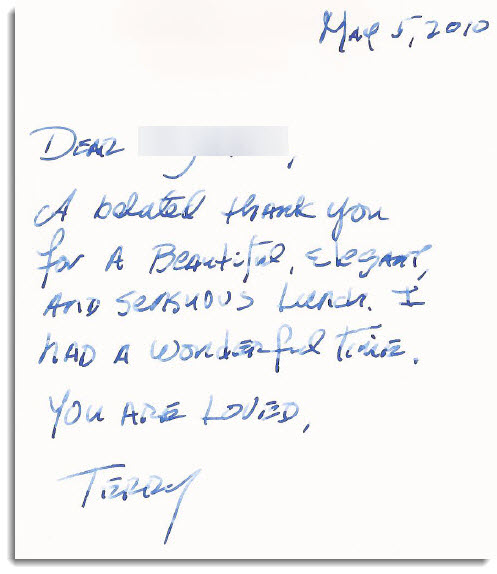 May 5, 2010
Dear
A belated thank you
for a Beautiful, elegant,
and sensuous Lunch. I
had a wonderful time.
You are Loved,
Terry